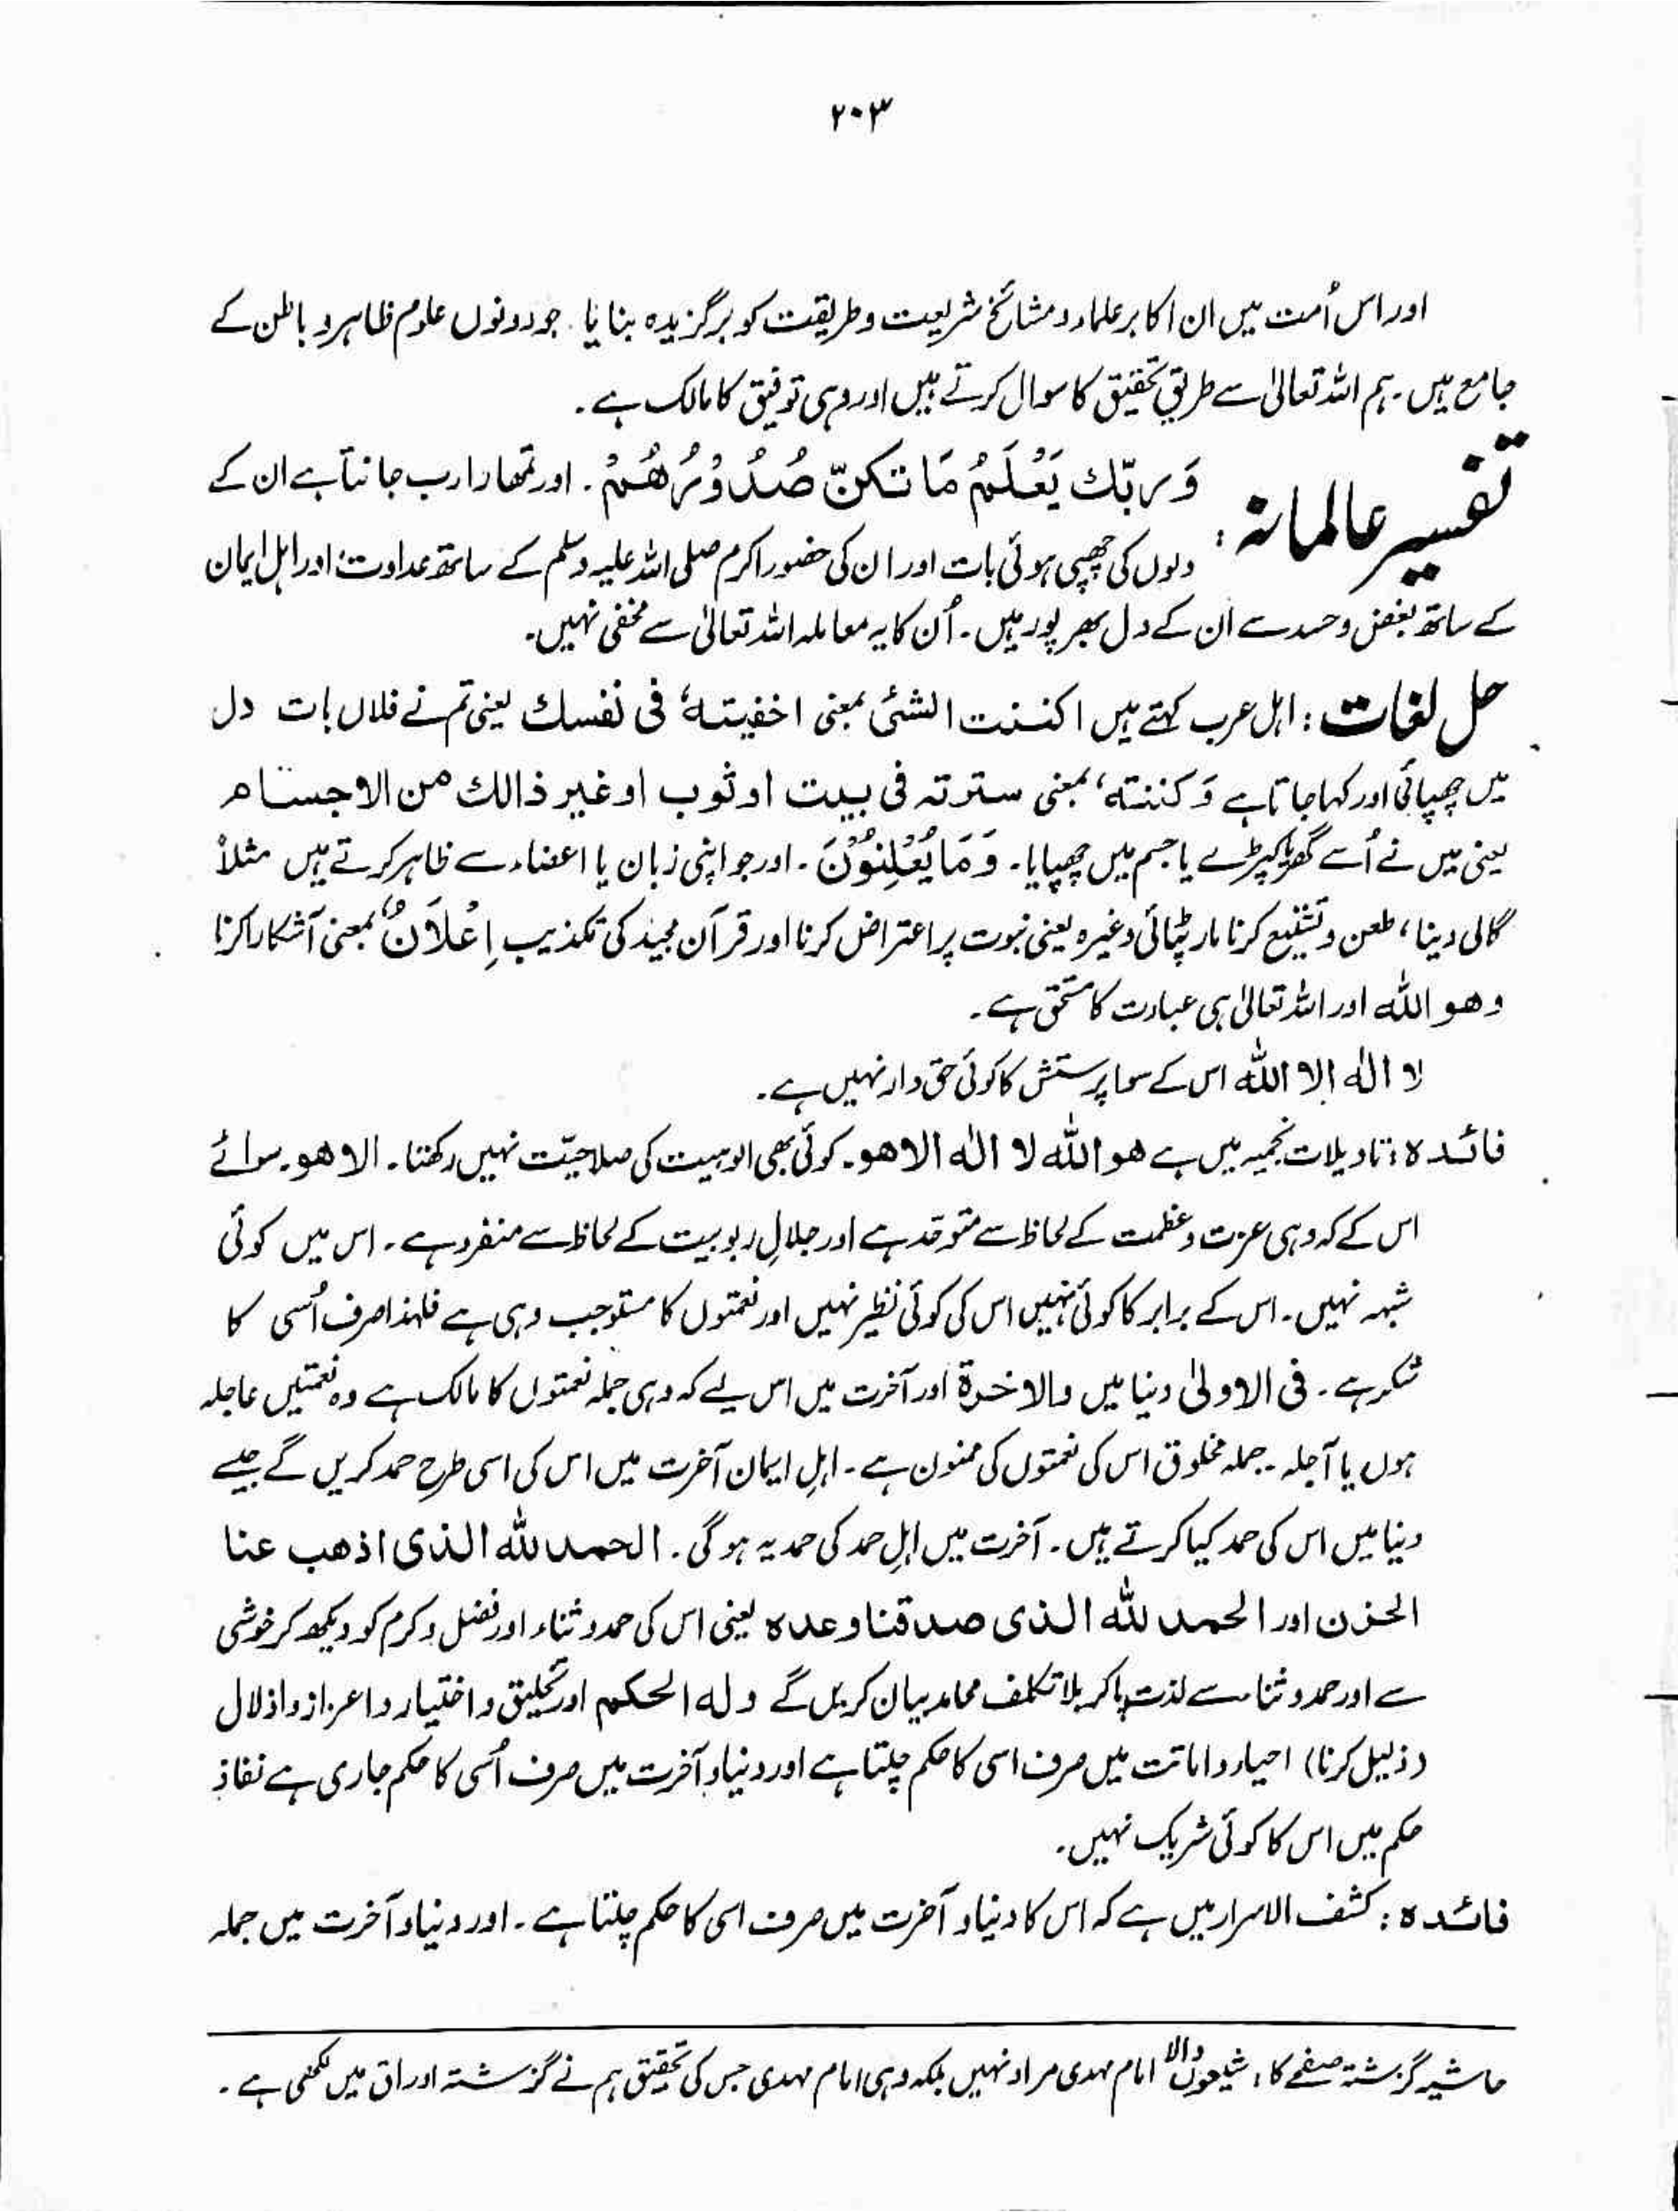 ۲۰۳
اور اس اُمت میں ان اکابر علماء و مشائخ شریعت و طریقت کو برگزیدہ بنایا۔ جو دونوں علوم ظاہر و باطن کے
جامع ہیں۔ ہم اللہ تعالیٰ سے طریقِ تحقیق کا سوال کرتے ہیں اور وہی توفیق کا مالک ہے۔
تفسیر عالمانہ : وَ ربّك یَعْلَمُ مَا تکنّ صُدُوْرُھُمْ۔ اور تمھارا رب جانتا ہے ان کے
دلوں کی چھپی ہوئی بات اور ان کی حضور اکرم صلی اللہ علیہ وسلم کے ساتھ عداوت، اور اہل ایمان
کے ساتھ بغض و حسد سے ان کے دل بھر پور ہیں۔ اُن کا یہ معاملہ اللہ تعالیٰ سے مخفی نہیں۔
حل لغات : اہل عرب کہتے ہیں اکننت الشئی بمعنی اخفیتہٗ فی نفسك یعنی تم نے فلاں بات دل
میں چھپائی اور کہا جاتا ہے وَ کننتہ، بمعنی سترتہ فی بیت او ثوب او غیر ذالك من الاجسام
یعنی میں نے اُسے گھر یا کپڑے یا جسم میں چھپایا۔ وَ مَا یُعْلِنُوْنَ۔ اور جو اپنی زبان یا اعضاء سے ظاہر کرتے ہیں مثلاً
گالی دینا، طعن و تشنیع کرنا مار پٹائی وغیرہ یعنی نبوت پر اعتراض کرنا اور قرآن مجید کی تکذیب اِعْلَانٌ بمعنی آشکارا کرنا
وھو اللہ اور اللہ تعالیٰ ہی عبادت کا مستحق ہے۔
لا الٰہ الا اللہ اس کے سوا پرستش کا کوئی حق دار نہیں ہے۔
فائدہ : تاویلات نجمیہ میں ہے ھو اللہ لا الٰہ الا ھو۔ کوئی بھی الوہیت کی صلاحیّت نہیں رکھتا۔ الا ھو۔ سوائے
اس کے کہ وہی عزت و عظمت کے لحاظ سے متوحّد ہے اور جلالِ ربوبیت کے لحاظ سے منفرد ہے۔ اس میں کوئی
شبہہ نہیں۔ اس کے برابر کا کوئی نہیں اس کی کوئی نظیر نہیں اور نعمتوں کا مستوجب وہی ہے فلہٰذا صرف اُسی کا
شکر ہے۔ فی الاولیٰ دنیا میں والاخرۃ اور آخرت میں اس لیے کہ وہی جملہ نعمتوں کا مالک ہے وہ نعمتیں عاجلہ
ہوں یا آجلہ۔ جملہ مخلوق اس کی نعمتوں کی ممنون ہے۔ اہلِ ایمان آخرت میں اس کی اسی طرح حمد کریں گے جیسے
دنیا میں اس کی حمد کیا کرتے ہیں۔ آخرت میں اہلِ حمد کی حمد یہ ہوگی۔ الحمد للہ الذی اذھب عنا
الحزن اور الحمد للہ الذی صدقنا وعدہ یعنی اس کی حمد و ثناء اور فضل و کرم کو دیکھ کر خوشی
سے اور حمد و ثنا سے لذت پاکر بلا تکلف محامد بیان کریں گے ولہ الحکم اور تخلیق و اختیار و اعزاز و اذلال
(ذلیل کرنا) احیاء و اماتت میں صرف اسی کا حکم چلتا ہے اور دنیا و آخرت میں صرف اُسی کا حکم جاری ہے نفاذ
حکم میں اس کا کوئی شریک نہیں۔
فائدہ : کشف الاسرار میں ہے کہ اس کا دنیا و آخرت میں صرف اسی کا حکم چلتا ہے۔ اور دنیا و آخرت میں جملہ
حاشیہ گزشتہ صفحے کا : شیعوں والا امام مہدی مراد نہیں بلکہ وہی امام مہدی جس کی تحقیق ہم نے گزشتہ اوراق میں لکھی ہے۔